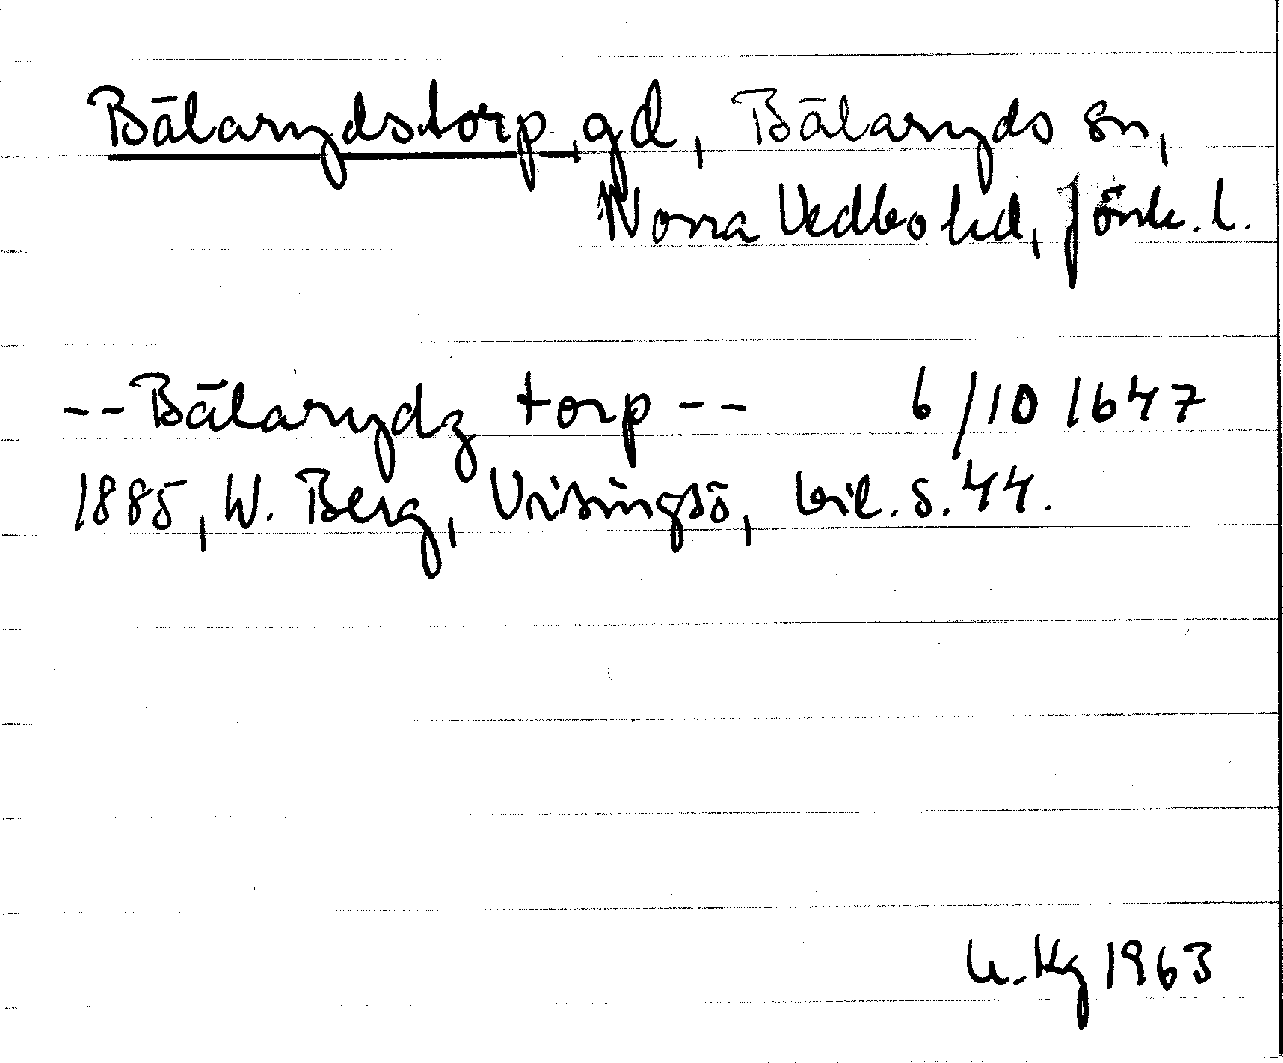 Bälarydstorp, gd, Bälaryds sn,
Norra Vedbo hd, Jönk. l.
--Bälarydz torp-- 6/10 1647
1885, W. Berg, Visingsö, bil. s. 44.
U. Kg 1963